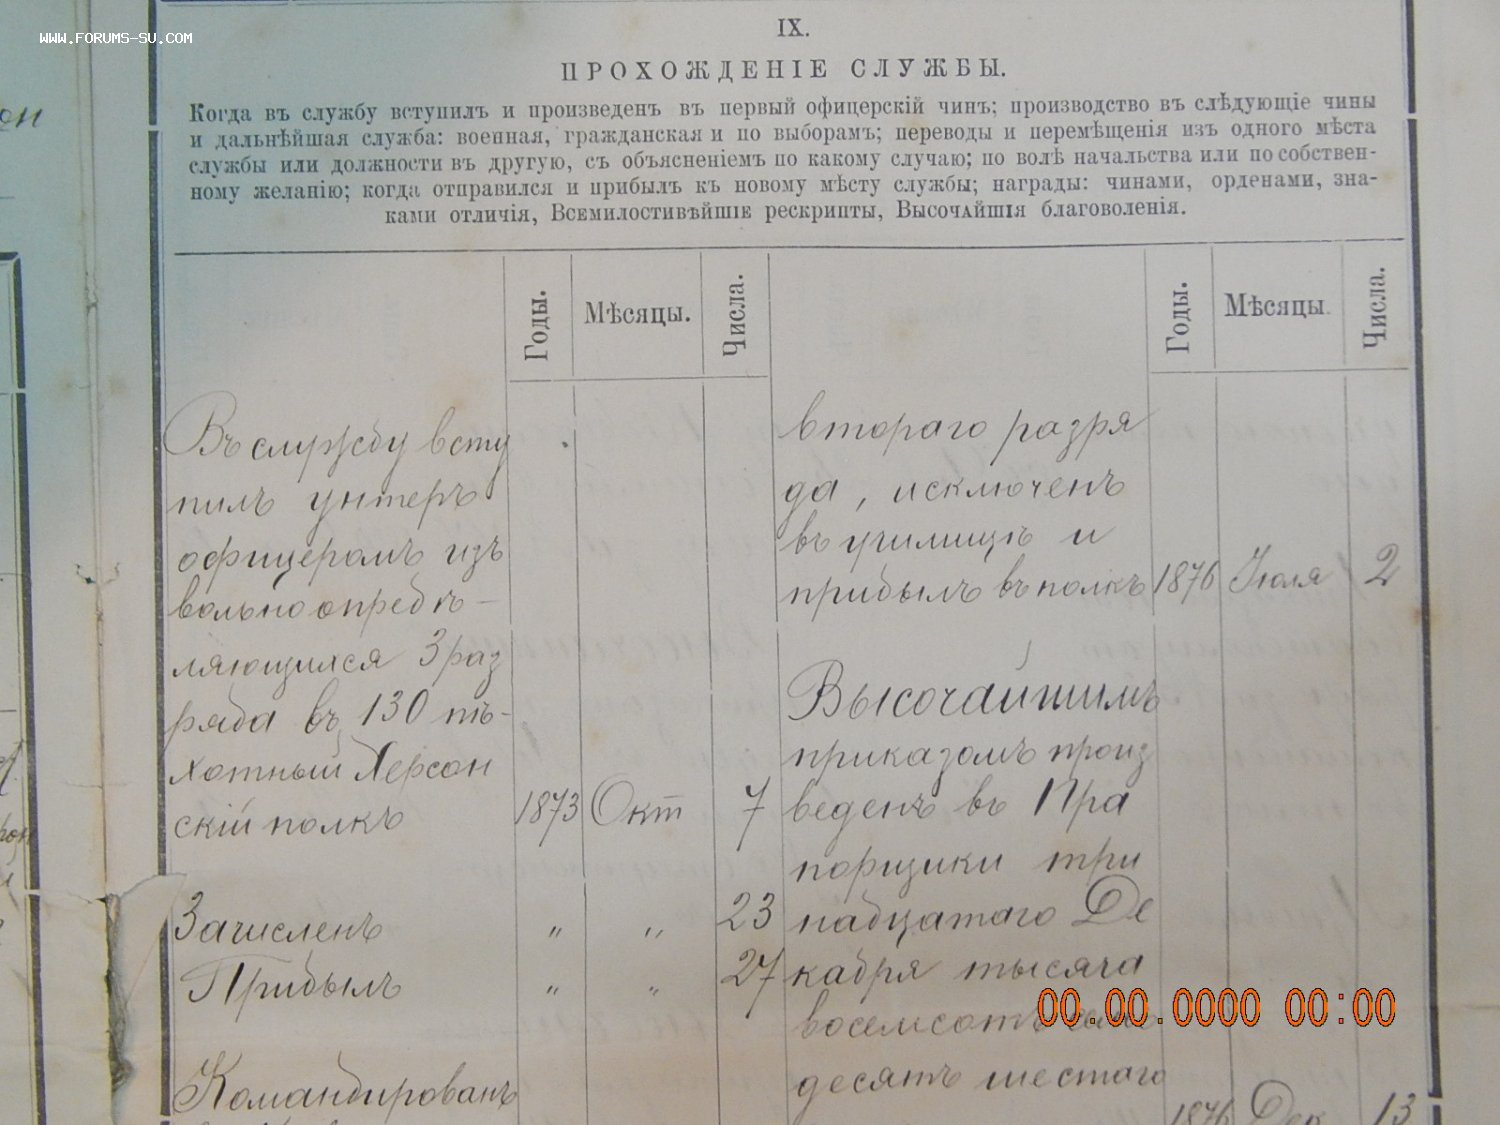 WWW.FORUMS-SU.COM
IX.
ПРОХОЖДЕНІЕ СЛУЖБЫ.
Когда въ службу вступилъ и произведенъ въ первый офицерскій чинъ; производство въ слѣдующіе чины
и дальнѣйшая служба: военная, гражданская и по выборамъ; переводы и перемѣщенія изъ одного мѣста
службы или должности въ другую, съ объясненіемъ по какому случаю; по волѣ начальства или по собствен-
ному желанію; когда отправился и прибылъ къ новому мѣсту службы; награды: чинами, орденами, зна-
ками отличія, Всемилостивѣйшіе рескрипты, Высочайшія благоволенія.
Годы.
Мѣсяцы.
Числа.
Въ службу всту
пилъ унтеръ
офицеромъ изъ
вольноопредѣ-
ляющихся 3 раз
ряда въ 130 пѣ-
хотный Херсон
скій полкъ 1873 Окт 7
Зачисленъ " " 23
Прибылъ " " 27
Командированъ
Годы.
Мѣсяцы.
Числа.
втораго разря
да, исключенъ
въ училищѣ и
прибылъ въ полкъ 1876 Іюля 2
Высочайшимъ
приказомъ произ
веденъ въ Пра
порщики три
надцатаго Де
кабря тысяча
восемсотъ семь
десятъ шестаго
1876 Дек 13
00.00.0000 00:00